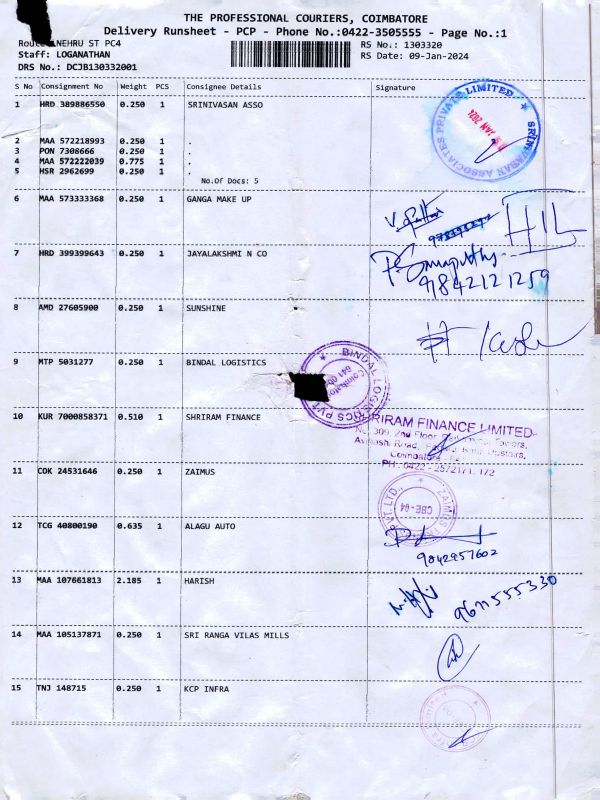 THE PROFESSIONAL COURIERS, COIMBATORE
Delivery Runsheet - PCP - Phone No.:0422-3505555 - Page No.:1
Route: NEHRU ST PC4 RS No.: 1303320
Staff: LOGANATHAN RS Date: 09-Jan-2024
DRS No.: DCJB130332001
S No Consignment No Weight PCS Consignee Details Signature
1 HRD 389886550 0.250 1 SRINIVASAN ASSO
SRINIVASAN ASSOCIATES PRIVATE LIMITED
JAN 2024
2 MAA 572218993 0.250 1 .
3 PON 7308666 0.250 1 .
4 MAA 572222039 0.775 1 .
5 HSR 2962699 0.250 1 .
No.Of Docs: 5
6 MAA 573333368 0.250 1 GANGA MAKE UP
7 HRD 399399643 0.250 1 JAYALAKSHMI N CO
9842121259
8 AMD 27605900 0.250 1 SUNSHINE
9 MTP 5031277 0.250 1 BINDAL LOGISTICS
BINDAL LOGISTICS PVT
Coimbatore
641
10 KUR 7000858371 0.510 1 SHRIRAM FINANCE
SHRIRAM FINANCE LIMITED
No. 309, 2nd Floor, Towers,
Road,
Coimbatore
PH : 0422 - 2572171, 172
11 COK 24531646 0.250 1 ZAIMUS
ZAIMUS PVT LTD.
CBE-04
12 TCG 40800190 0.635 1 ALAGU AUTO
9842957602
13 MAA 107661813 2.185 1 HARISH
9611555330
14 MAA 105137871 0.250 1 SRI RANGA VILAS MILLS
15 TNJ 148715 0.250 1 KCP INFRA